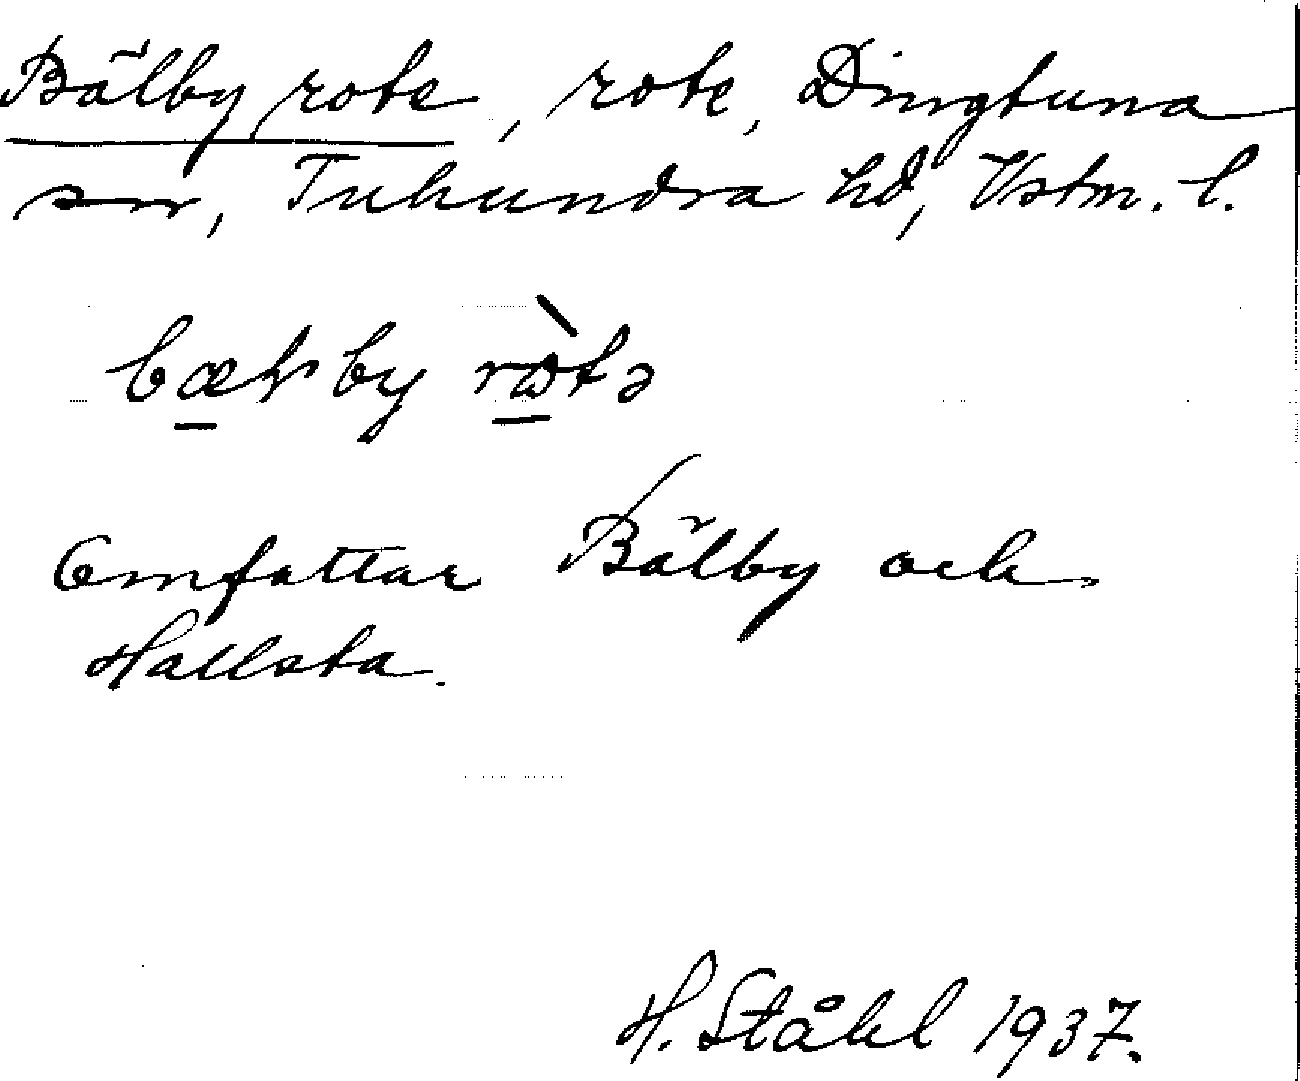 Bälby rote, rote, Dingtuna
sn, Tuhundra hd, Vstm. l.
Omfattar Bälby och
Hallsta.
H. Ståhl 1937.